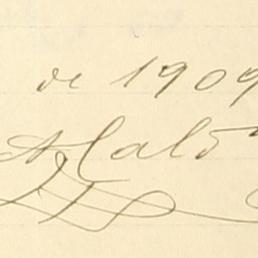 de 1909
A Cald